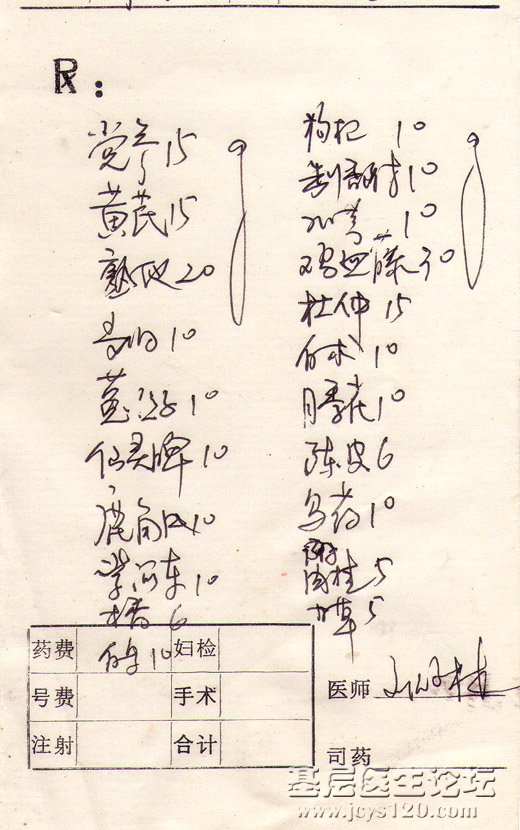 ℞：
党参15
黄芪15
熟地20
当归10
菟丝子10
仙灵脾10
鹿角 10
紫河车10
木香6
10
枸杞 10
制香附10
川芎 10
鸡血藤30
杜仲 15
白术 10
月季花10
陈皮6
乌药10
肉桂5
甘草5
药费 妇检
号费 手术
注射 合计
医师
司药
基层医生论坛
www.jcys120.com